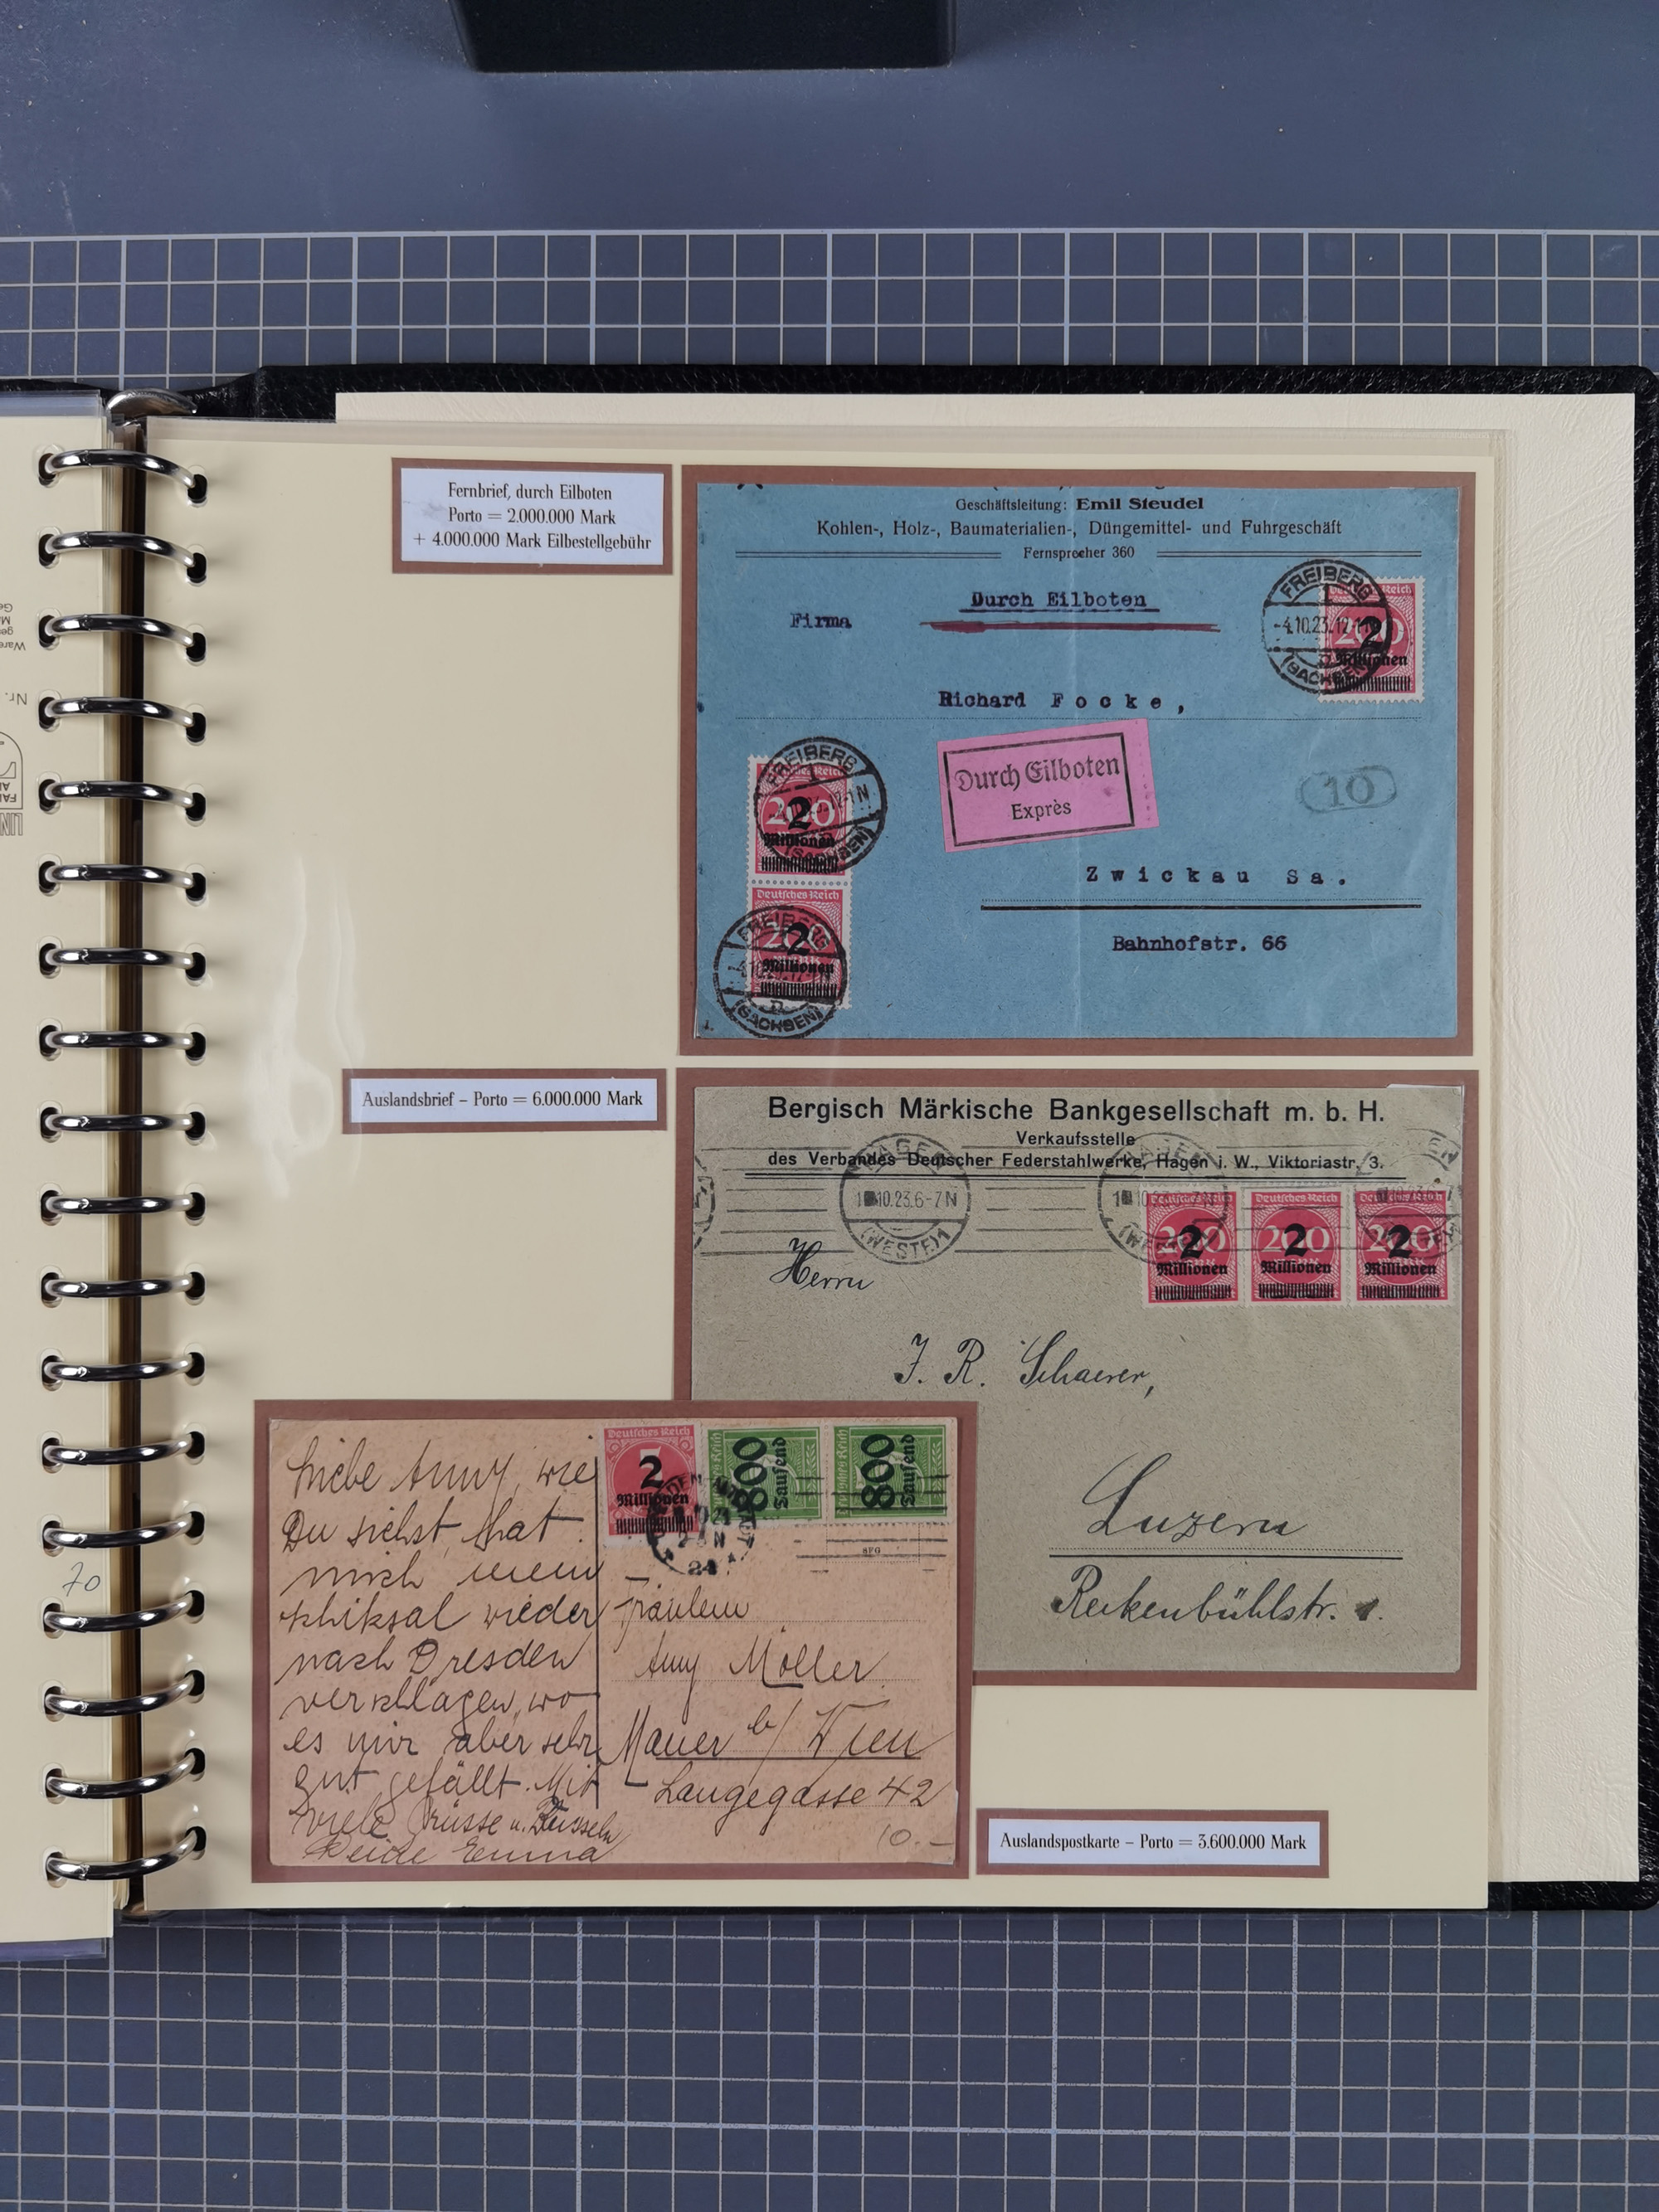 Fernbrief, durch Eilboten
Porto = 2.000.000 Mark
+ 4.000.000 Mark Eilbestellgebühr
Geschäftsleitung: Emil Steudel
Kohlen-, Holz-, Baumaterialien-, Düngemittel- und Fuhrgeschäft
Fernsprecher 360
Durch Eilboten
Firma
FREIBERG
1
-4.10.23.12-1N
(SACHSEN)
Deutsches Reich
200
2
Millionen
Richard Focke,
Durch Eilboten
Exprès
10
FREIBERG
(SACHSEN)
200
2
Millionen
Deutsches Reich
2
Millionen
(SACHSEN)
Zwickau Sa.
Bahnhofstr. 66
Auslandsbrief – Porto = 6.000.000 Mark
Bergisch Märkische Bankgesellschaft m. b. H.
Verkaufsstelle
des Verbandes Deutscher Federstahlwerke, Hagen i. W., Viktoriastr. 3.
HAGEN
10.23.6-7N
(WESTF)1
Deutsches Reich Deutsches Reich Deutsches Reich
200 200 200
2 2 2
Millionen Millionen Millionen
Herrn
J. R. Schaerer,
Luzern
Reckenbühlstr. 1.
Deutsches Reich
2
Millionen
800
Tausend
800
Tausend
24
Liebe Anny, wie
Du siehst, hat
mich mein
schiksal wieder
nach Dresden
verschlagen, wo
es mir aber sehr
gut gefällt. Mit
viele Grüsse u. Busseln
Emma
Fräulein
Anny Möller
Mauer b/ Wien
Langegasse 42
10.–
Auslandspostkarte – Porto = 3.600.000 Mark
70
Nr.